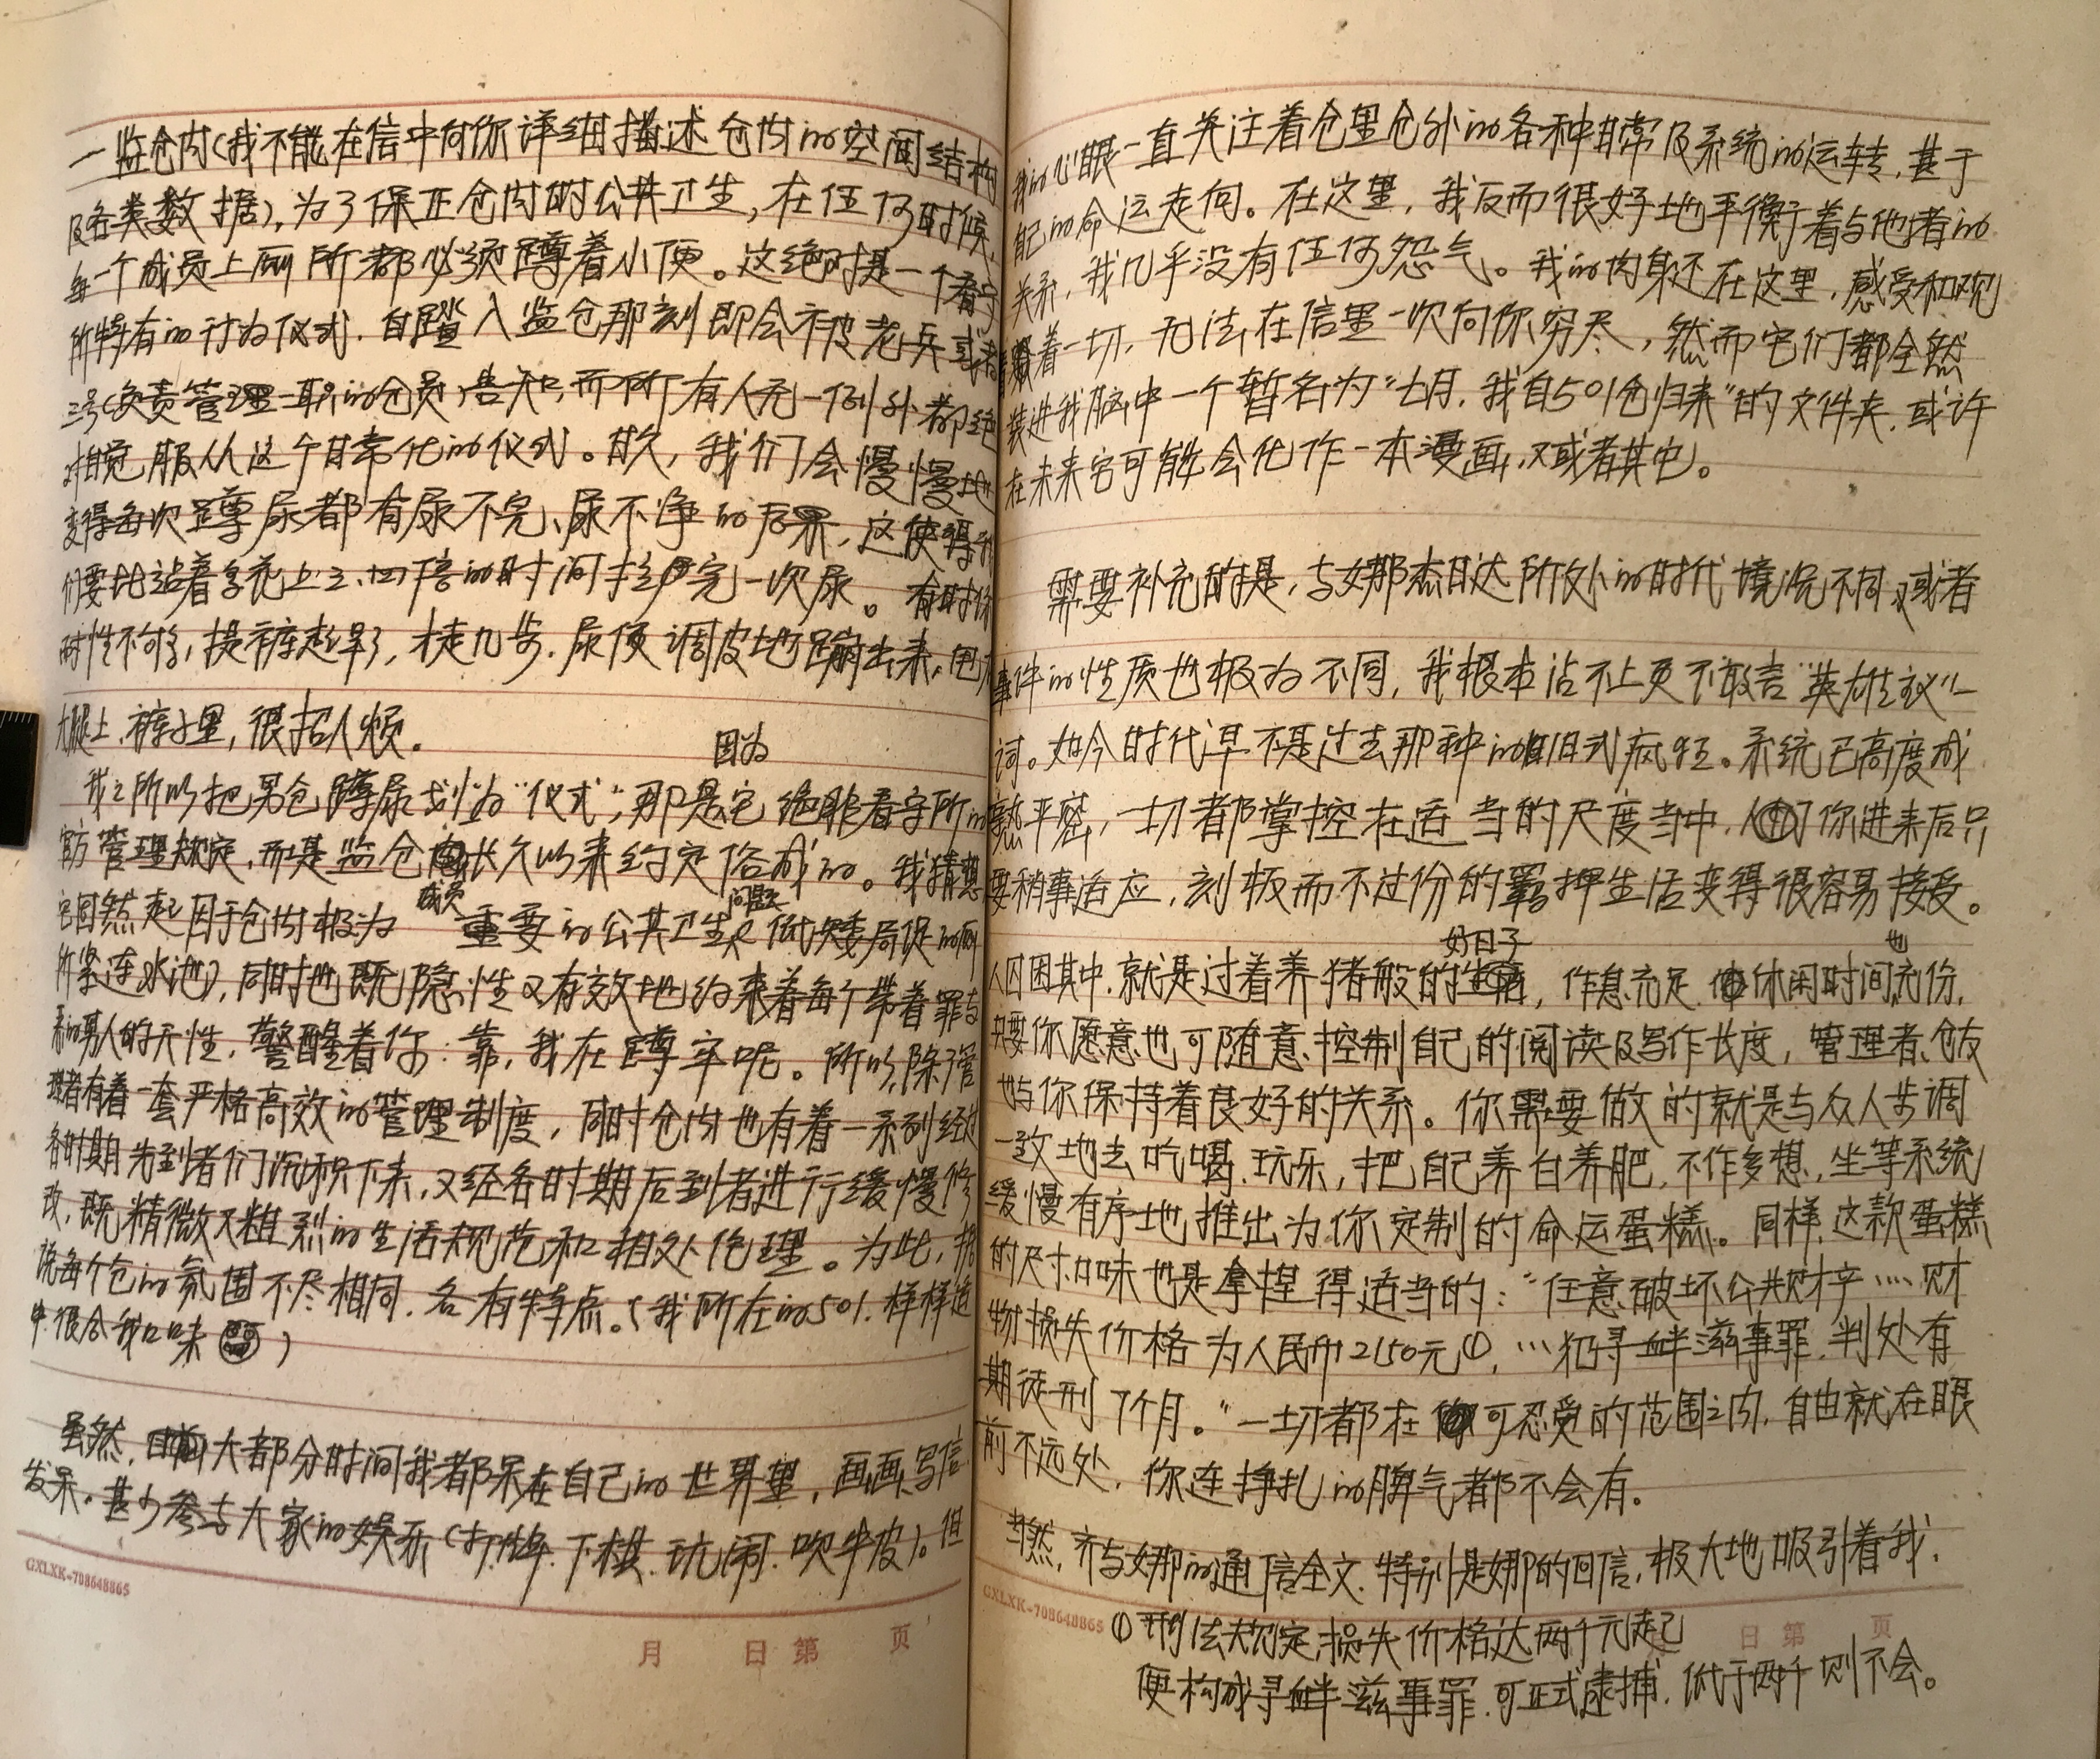 一监仓内(我不能在信中向你详细描述仓内的空间结构
及各类数据),为了保正仓内的公共卫生,在任何时候,
每一个成员上厕所都必须蹲着小便。这绝对是一个看守
所特有的行为仪式,自踏入监仓那刻即会被老兵或者
三号(负责管理一职的仓员)告知,而所有人无一例外都绝
对自觉服从这个日常化的仪式。日久,我们会慢慢地
变得每次蹲尿都有尿不完、尿不净的后果,这使得我
们要比站着多花上三、四倍的时间拉完一次尿。有时你
耐性不够,提裤起早了,才走几步,尿便调皮地蹦出来,甩
大腿上、裤子里,很招人烦。
我之所以把男仓蹲尿划为“仪式”,那是因为它绝非看守所的
官方管理规定,而是监仓长久以来约定俗成的。我猜想
它固然起因于仓内极为成员重要的公共卫生问题(低矮局促的厕
所紧连水池),同时也既隐性又有效地约束着每个带着罪与
的男人的天性,警醒着你:靠,我在蹲牢呢。所以,除管
理者有着一套严格高效的管理制度,同时仓内也有着一系列经过
各时期先到者们沉积下来,又经各时期后到者进行缓慢修
改,既精微又粗烈的生活规范和相处伦理。为此,据
说每个仓的氛围不尽相同,各有特点。(我所在的501,样样适
中,很合我口味)
虽然,大部分时间我都呆在自己的世界里,画画、写信
发呆。甚少参与大家的娱乐(打牌、下棋、玩闹、吹牛皮)。但
我的心眼一直关注着仓里仓外的各种日常及系统的运转,甚于
自己的命运走向。在这里,我反而很好地平衡着与他者的
关系,我几乎没有任何怨气。我的肉身还在这里,感受和观
着一切,无法在信里一次向你穷尽,然而它们都全然
装进我脑中一个暂名为“七月,我自501仓归来”的文件夹,或许
在未来它可能会化作一本漫画,又或者其它。
需要补充的是,与娜杰日达所处的时代境况不同,又或者
事件的性质也极为不同,我根本沾不上更不敢言“英雄主义”一
词。如今时代早不是过去那种的旧式疯狂。系统已高度成
熟严密,一切都掌控在适当的尺度当中,你进来后只
要稍事适应,刻板而不过份的羁押生活变得很容易接受。
人囚困其中,就是过着养猪般的好日子,作息充足,休闲时间也充份,
只要你愿意也可随意控制自己的阅读及写作长度,管理者、仓友
也与你保持着良好的关系。你需要做的就是与众人步调
一致地去吃喝、玩乐,把自己养白养肥,不作多想,坐等系统
缓慢有序地推出为你定制的命运蛋糕。同样,这款蛋糕
的尺寸、口味也是拿捏得适当的:“任意破坏公共财产……财
物损失价格为人民币2150元①,…犯寻衅滋事罪,判处有
期徒刑7个月。”一切都在可忍受的范围之内,自由就在眼
前不远处,你连挣扎的脾气都不会有。
当然,齐与娜的通信全文,特别是娜的回信,极大地吸引着我,
①刑法规定,损失价格达两千元起
便构成寻衅滋事罪,可正式逮捕,低于两千则不会。
GXLXK-708648865
月 日 第 页
GXLXK-708648865
日 第 页